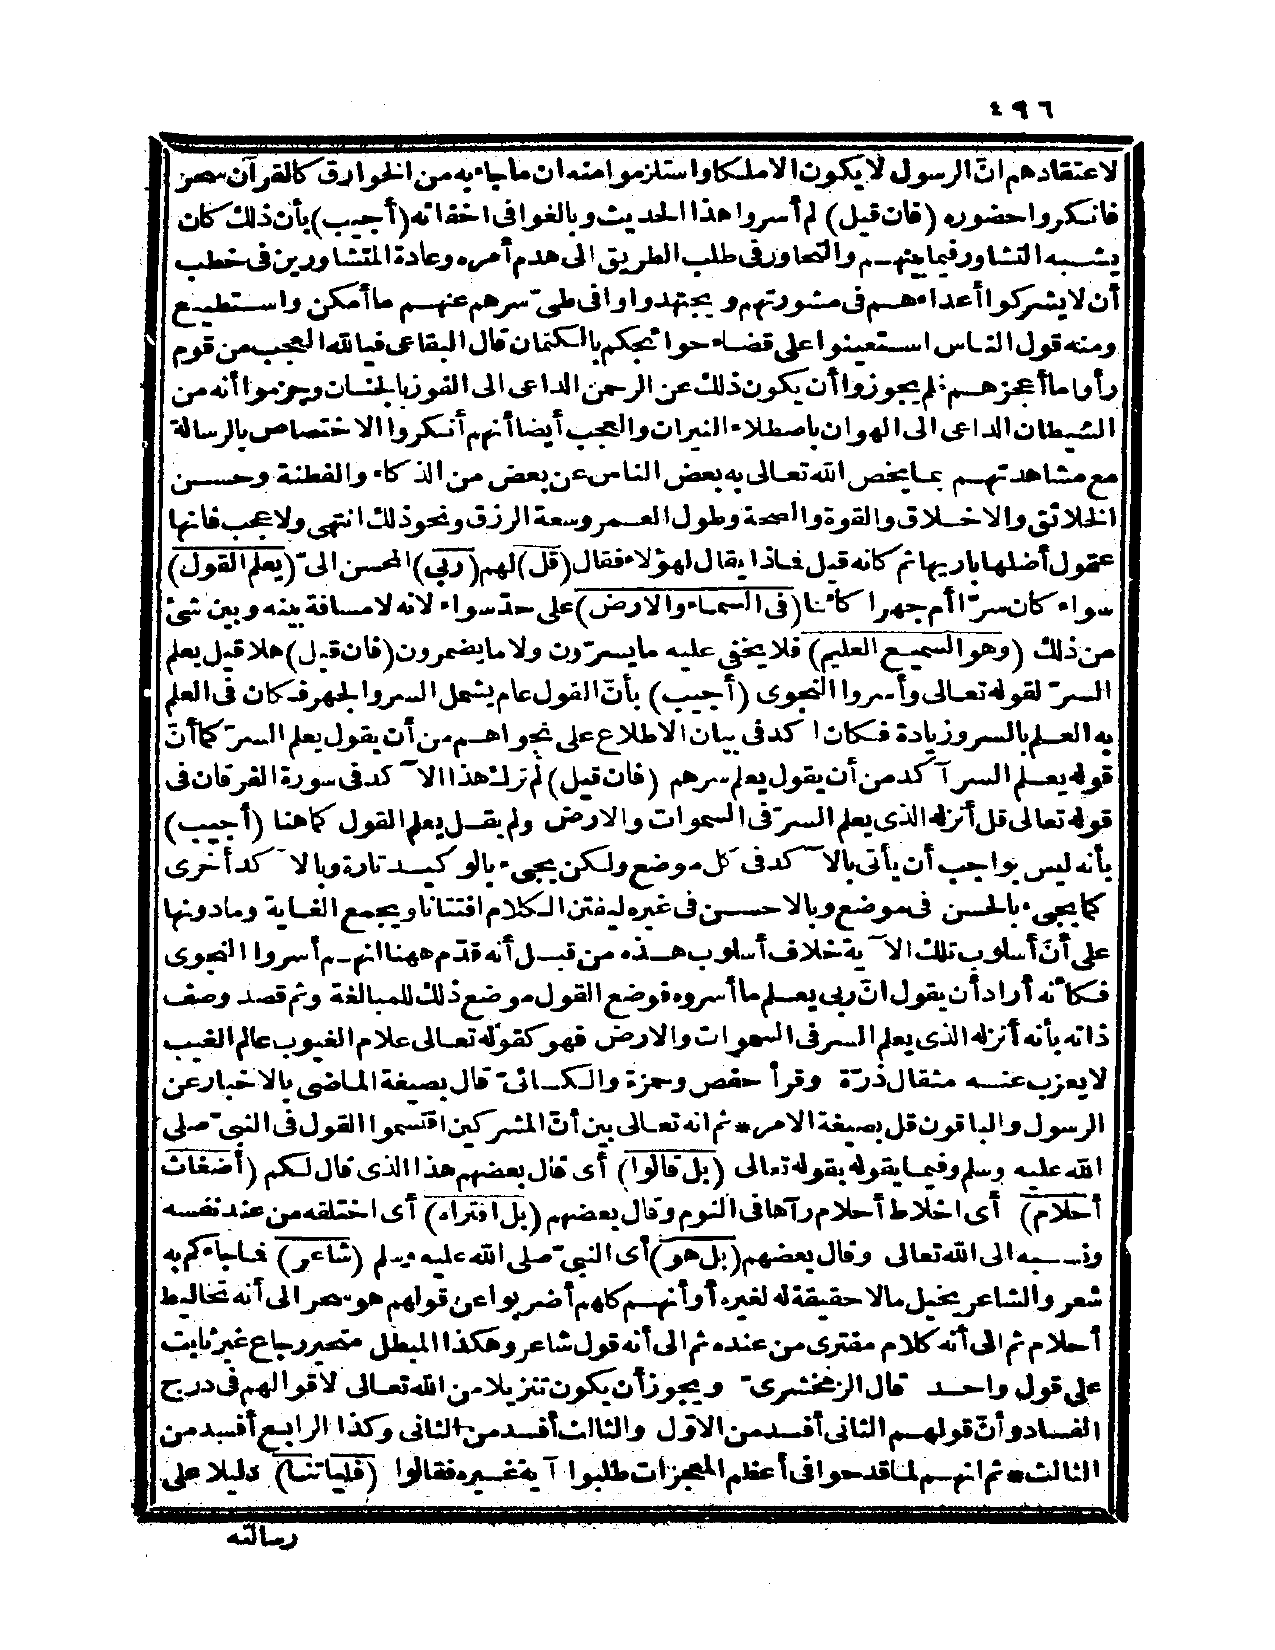 ٤٩٦
لاعتقادهم انّ الرسول لا يكون الا ملكا واستلزموا منه ان ما جاء به من الخوارق كالقرآن سحر
فانكروا حضوره (فان قيل) لم أسروا هذا الحديث وبالغوا فى اخفائه (أجيب) بأن ذلك كان
يشبه التشاور فيما بينهم والتحاور فى طلب الطريق الى هدم أمره وعادة المتشاورين فى خطب
أن لا يشركوا أعداءهم فى مشورتهم ويجتهدوا فى طىّ سرهم عنهم ما أمكن واستطيع
ومنه قول الناس استعينوا على قضاء حوائجكم بالكتمان قال البقاعى فيالله العجب من قوم
رأوا ما أعجزهم فلم يجوزوا أن يكون ذلك عن الرحمن الداعى الى الفوز بالجنان وجزموا أنه من
الشيطان الداعى الى الهوان باصطلاء النيران والعجب أيضا أنهم أنكروا الاختصاص بالرسالة
مع مشاهدتهم بما يخص الله تعالى به بعض الناس عن بعض من الذكاء والفطنة وحسن
الخلائق والاخلاق والقوة والصحة وطول العمر وسعة الرزق ونحو ذلك انتهى ولا عجب فانها
عقول أضلها باريها ثم كانه قيل فماذا يقال لهؤلاء فقال (قل) لهم (ربى) المحسن الىّ (يعلم القول)
سواء كان سرّا أم جهرا كائنا (فى السماء والارض) على حدّ سواء لانه لا مسافة بينه وبين شئ
من ذلك (وهو السميع العليم) فلا يخفى عليه ما يسرّون ولا ما يضمرون (فان قيل) هلا قيل يعلم
السرّ لقوله تعالى وأسروا النجوى (أجيب) بأنّ القول عام يشمل السر والجهر فكان فى العلم
به العلم بالسر وزيادة فكان اكد فى بيان الاطلاع على نجواهم من أن يقول يعلم السرّ كما أنّ
قوله يعلم السر آكد من أن يقول يعلم سرهم (فان قيل) لم ترك هذا الآكد فى سورة الفرقان فى
قوله تعالى قل أنزله الذى يعلم السرّ فى السموات والارض ولم يقل يعلم القول كما هنا (أجيب)
بأنه ليس بواجب أن يأتى بالآكد فى كل موضع ولكن يجىء بالوكيد تارة وبالآكد أخرى
كما يجىء بالحسن فى موضع وبالاحسن فى غيره ليفتن الكلام افتنانا ويجمع الغاية وما دونها
على أنّ أسلوب تلك الآية خلاف أسلوب هذه من قبل أنه قدّم ههنا انهم أسروا النجوى
فكأنه أراد أن يقول انّ ربى يعلم ما أسروه فوضع القول موضع ذلك للمبالغة وثم قصد وصف
ذاته بأنه أنزله الذى يعلم السر فى السموات والارض فهو كقوله تعالى علام الغيوب عالم الغيب
لا يعزب عنه مثقال ذرّة وقرأ حفص وحمزة والكسائىّ قال بصيغة الماضى بالاخبار عن
الرسول والباقون قل بصيغة الامر * ثم انه تعالى بين أنّ المشركين اقتسموا القول فى النبىّ صلى
الله عليه وسلم وفيما يقوله بقوله تعالى (بل قالوا) أى قال بعضهم هذا الذى قال لكم (أضغاث
أحلام) أى اخلاط أحلام رآها فى النوم وقال بعضهم (بل افتراه) أى اختلقه من عند نفسه
ونسبه الى الله تعالى وقال بعضهم (بل هو) أى النبىّ صلى الله عليه وسلم (شاعر) فما جاءكم به
شعر والشاعر يخيل ما لا حقيقة له لغيره أو أنهم كلهم أضربوا عن قولهم هو سحر الى أنه تخاليط
أحلام ثم الى أنه كلام مفترى من عنده ثم الى أنه قول شاعر وهكذا المبطل متحير رجاع غير ثابت
على قول واحد قال الزمخشرىّ ويجوز أن يكون تنزيلا من الله تعالى لاقوالهم فى درج
الفساد وأنّ قولهم الثانى أفسد من الاوّل والثالث أفسد من الثانى وكذا الرابع أفسد من
الثالث * ثم انهم لما قدحوا فى أعظم المعجزات طلبوا آية غيره فقالوا (فليأتنا) دليلا على
رسالته